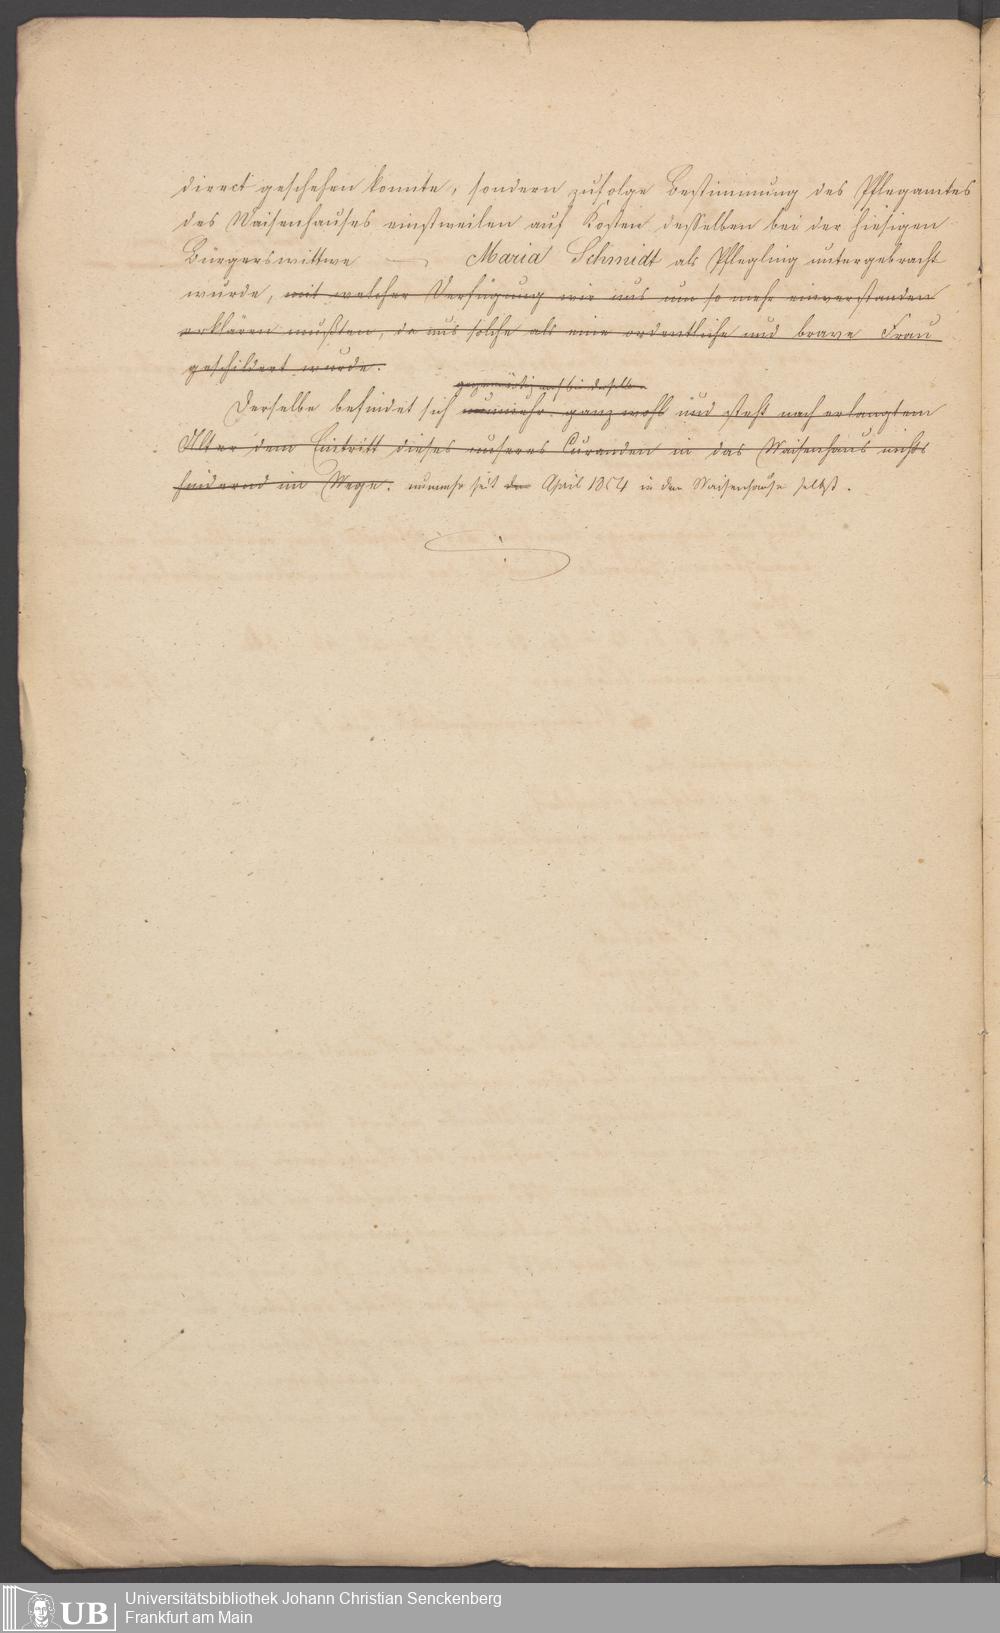 direct geschehen konnte, sondern zufolge Bestimmung des Pflegamtes
des Waisenhauses einstweilen auf Kosten desselben bei der hiesigen
Bürgerswittwe — Maria Schmidt als Pflegling untergebracht
wurde, mit welcher Verfügung wir uns um so mehr einverstanden
erklären mußten, da uns solche als eine ordentliche und brave Frau
geschildert wurde.
gegenwärtig noch bei derselben
Derselbe befindet sich nunmehr ganz wohl und steht nach erlangtem
Alter dem Eintritt dieses unseres Curanden in das Waisenhaus nichts
hindernd im Wege. nunmehr seit April 1854 in dem Waisenhause selbst.
UB
Universitätsbibliothek Johann Christian Senckenberg
Frankfurt am Main